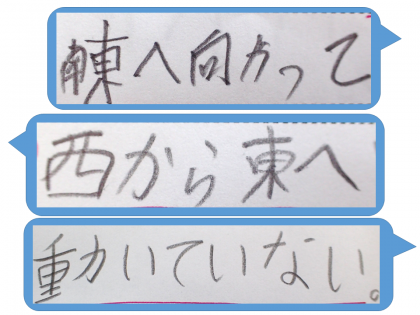 南東へ向かって
西から東へ
動いていない。